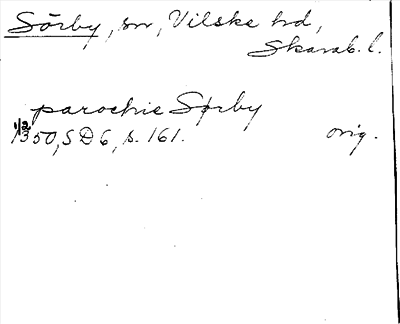 Sörby, sn, Vilske hd,
Skarab. l.
parochie Sørby
1/2 1350, SD 6, s. 161. orig.